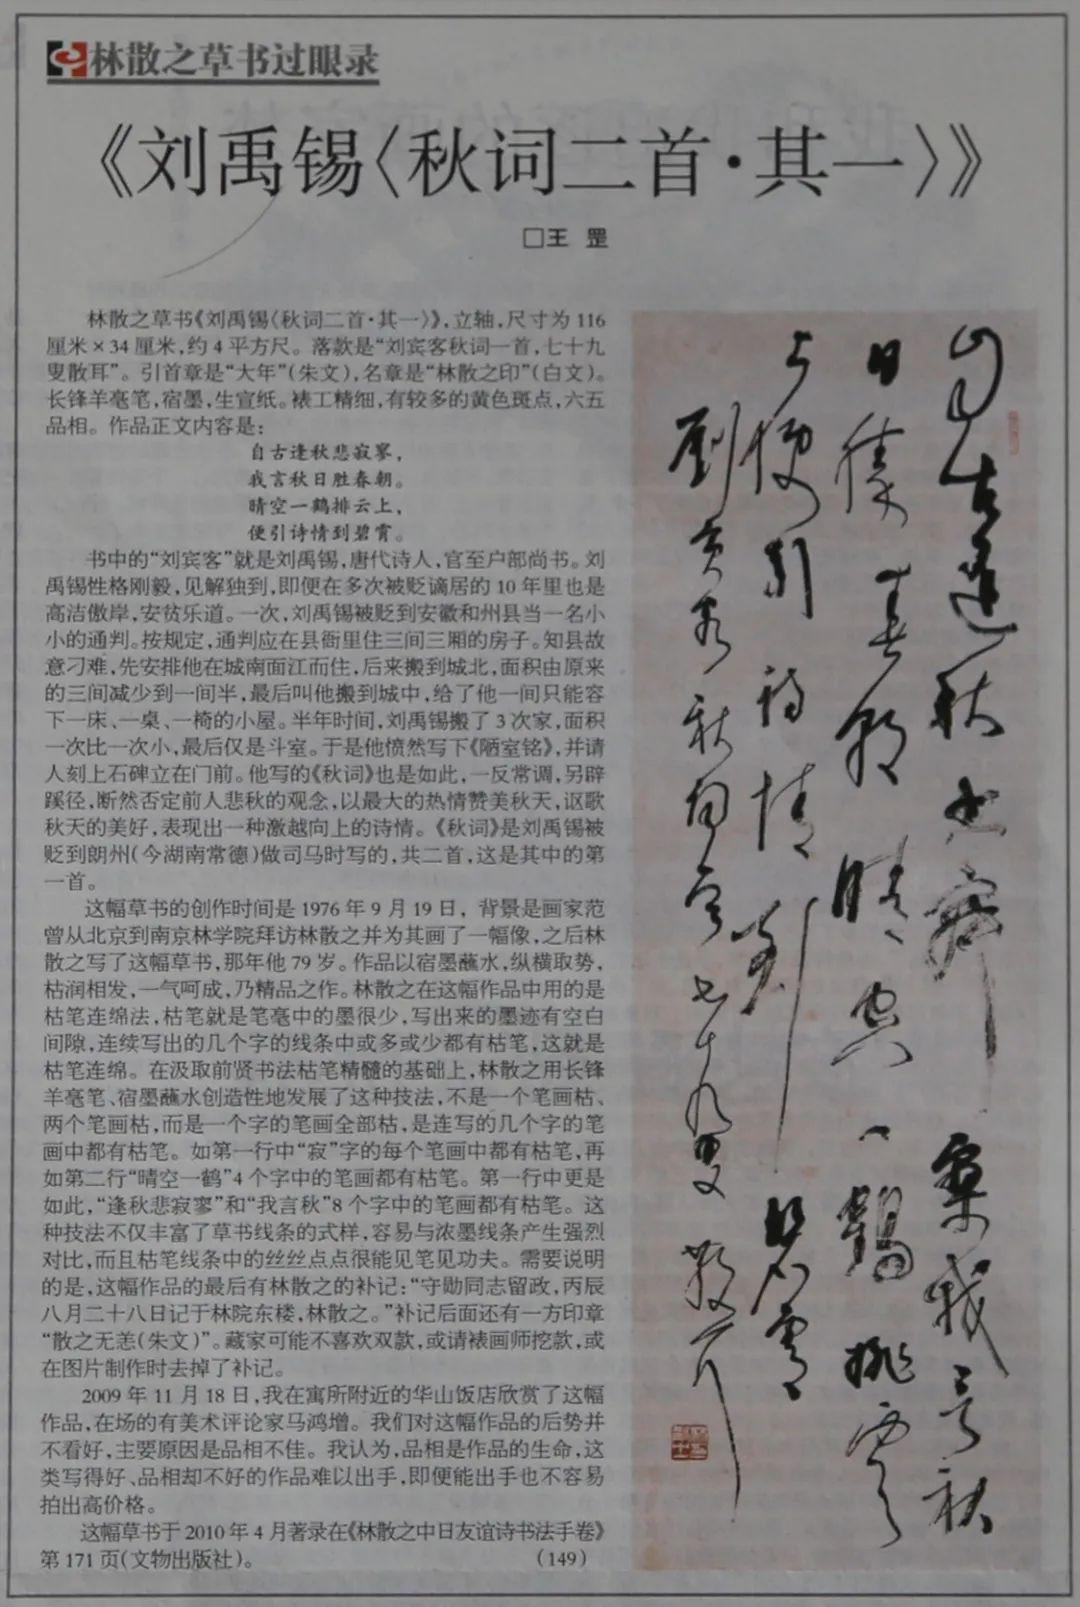 林散之草书过眼录
《刘禹锡〈秋词二首·其一〉》
□王 罡
林散之草书《刘禹锡〈秋词二首·其一〉》,立轴,尺寸为 116
厘米×34 厘米,约 4 平方尺。落款是“刘宾客秋词一首,七十九
叟散耳”。引首章是“大年”(朱文),名章是“林散之印”(白文)。
长锋羊毫笔,宿墨,生宣纸。裱工精细,有较多的黄色斑点,六五
品相。作品正文内容是:
自古逢秋悲寂寥,
我言秋日胜春朝。
晴空一鹤排云上,
便引诗情到碧霄。
书中的“刘宾客”就是刘禹锡,唐代诗人,官至户部尚书。刘
禹锡性格刚毅,见解独到,即便在多次被贬谪居的 10 年里也是
高洁傲岸,安贫乐道。一次,刘禹锡被贬到安徽和州县当一名小
小的通判。按规定,通判应在县衙里住三间三厢的房子。知县故
意刁难,先安排他在城南面江而住,后来搬到城北,面积由原来
的三间减少到一间半,最后叫他搬到城中,给了他一间只能容
下一床、一桌、一椅的小屋。半年时间,刘禹锡搬了 3 次家,面积
一次比一次小,最后仅是斗室。于是他愤然写下《陋室铭》,并请
人刻上石碑立在门前。他写的《秋词》也是如此,一反常调,另辟
蹊径,断然否定前人悲秋的观念,以最大的热情赞美秋天,讴歌
秋天的美好,表现出一种激越向上的诗情。《秋词》是刘禹锡被
贬到朗州(今湖南常德)做司马时写的,共二首,这是其中的第
一首。
这幅草书的创作时间是 1976 年 9 月 19 日,背景是画家范
曾从北京到南京林学院拜访林散之并为其画了一幅像,之后林
散之写了这幅草书,那年他 79 岁。作品以宿墨蘸水,纵横取势,
枯润相发,一气呵成,乃精品之作。林散之在这幅作品中用的是
枯笔连绵法,枯笔就是笔毫中的墨很少,写出来的墨迹有空白
间隙,连续写出的几个字的线条中或多或少都有枯笔,这就是
枯笔连绵。在汲取前贤书法枯笔精髓的基础上,林散之用长锋
羊毫笔、宿墨蘸水创造性地发展了这种技法,不是一个笔画枯、
两个笔画枯,而是一个字的笔画全部枯,是连写的几个字的笔
画中都有枯笔。如第一行中“寂”字的每个笔画中都有枯笔,再
如第二行“晴空一鹤”4 个字中的笔画都有枯笔。第一行中更是
如此,“逢秋悲寂寥”和“我言秋”8 个字中的笔画都有枯笔。这
种技法不仅丰富了草书线条的式样,容易与浓墨线条产生强烈
对比,而且枯笔线条中的丝丝点点很能见笔见功夫。需要说明
的是,这幅作品的最后有林散之的补记:“守勋同志留政,丙辰
八月二十八日记于林院东楼,林散之。”补记后面还有一方印章
“散之无恙(朱文)”。藏家可能不喜欢双款,或请裱画师挖款,或
在图片制作时去掉了补记。
2009 年 11 月 18 日,我在寓所附近的华山饭店欣赏了这幅
作品,在场的有美术评论家马鸿增。我们对这幅作品的后势并
不看好,主要原因是品相不佳。我认为,品相是作品的生命,这
类写得好、品相却不好的作品难以出手,即便能出手也不容易
拍出高价格。
这幅草书于 2010 年 4 月著录在《林散之中日友谊诗书法手卷》
第 171 页(文物出版社)。 (149)
自古逢秋悲寂寥我言秋
日胜春朝晴空一鹤排云
上便引诗情到碧霄
刘宾客秋词一首七十九叟散耳